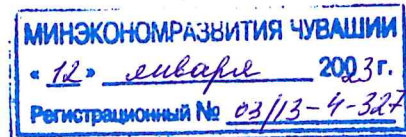 МИНЭКОНОМРАЗВИТИЯ ЧУВАШИИ
« 12 » января 2023 г.
Регистрационный № 03/13-4-327